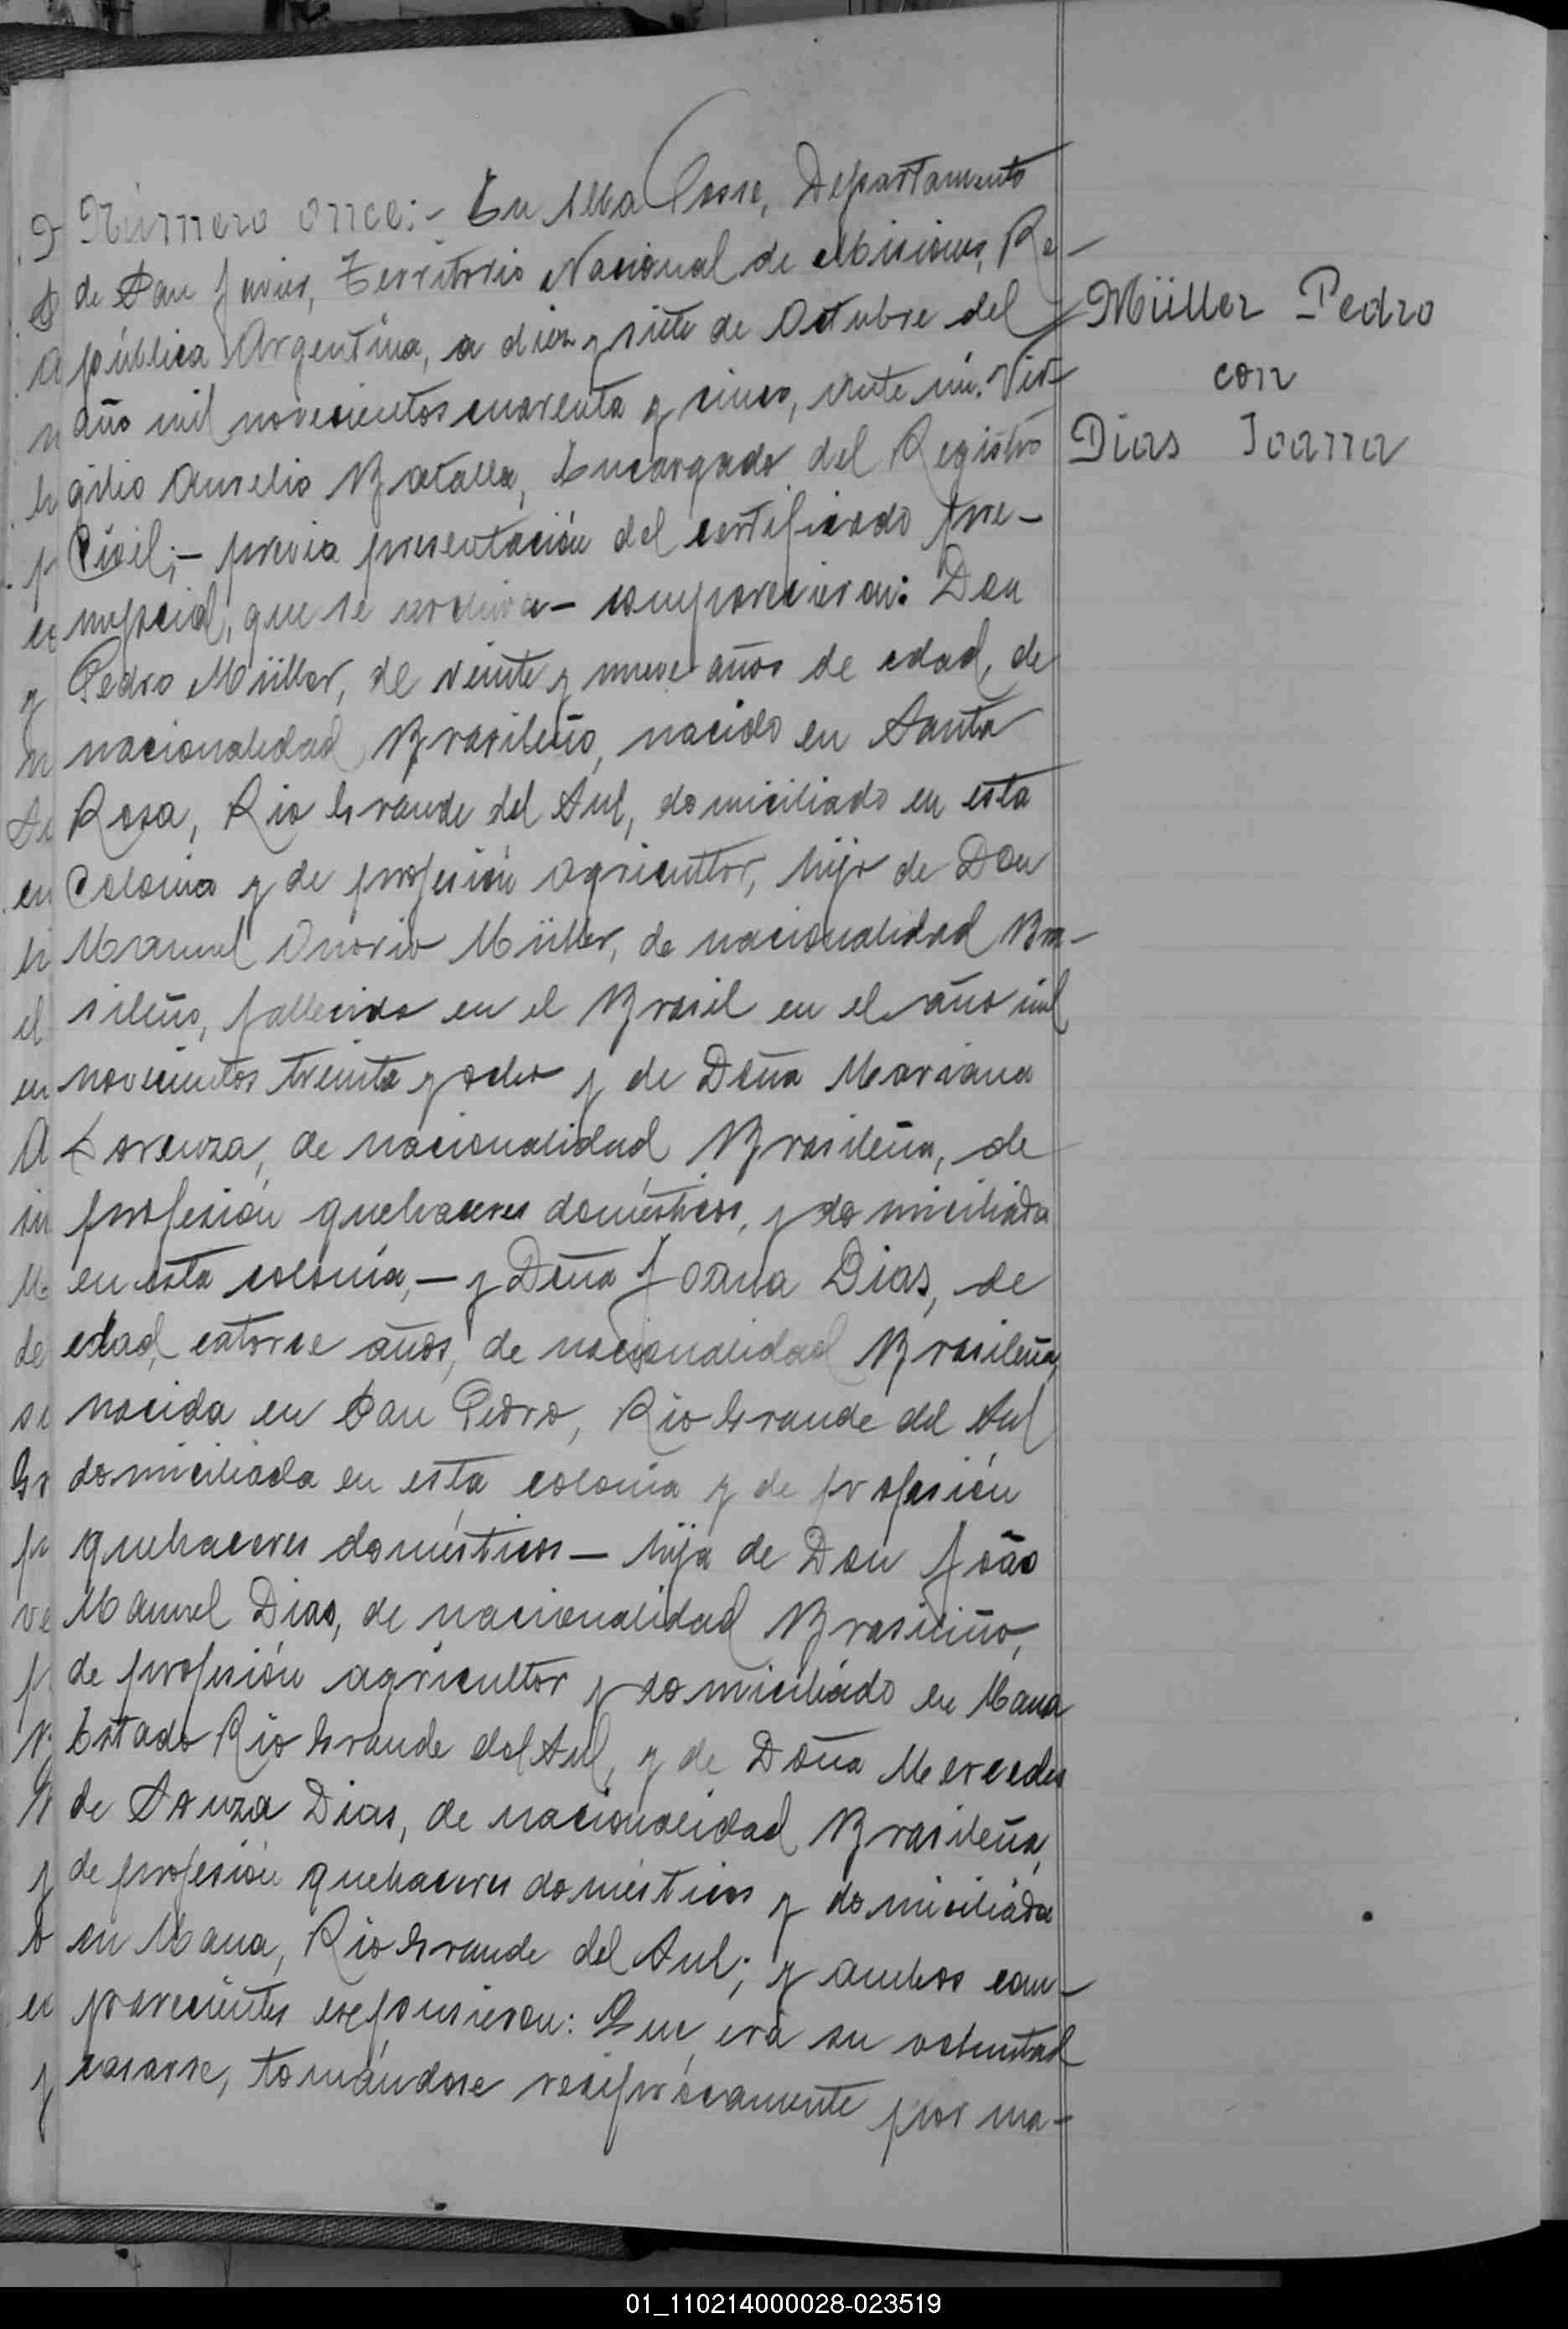 Número once:- En Alba Posse, Departamento
de San Javier, Territorio Nacional de Misiones, Re-
pública Argentina, a diez y siete de Octubre del
año mil novecientos cuarenta y cinco, ante mí. Vir-
gilio Aurelio Batalla, Encargado del Registro
Civil;- previa presentación del certificado pre-
nupcial, que se archiva- comparecieron: Don
Pedro Müller, de veinte y nueve años de edad, de
nacionalidad Brasileño, nacido en Santa
Rosa, Rio Grande del Sul, domiciliado en esta
Colonia y de profesión agricultor, hijo de Don
Manuel Onorio Müller, de nacionalidad Bra-
sileño, fallecido en el Brasil en el año mil
novecientos treinta y ocho y de Doña Mariana
Lorenza, de nacionalidad Brasileña, de
profesión quehaceres domésticos, y domiciliada
en esta colonia,- y Doña Joana Dias, de
edad, catorce años, de nacionalidad Brasileña,
nacida en San Pedro, Rio Grande del Sul
domiciliada en esta colonia y de profesión
quehaceres domésticos- hija de Don João
Manuel Dias, de nacionalidad Brasileño,
de profesión agricultor y domiciliado en Maua
Estado Rio Grande del Sul, y de Doña Mercedes
de Souza Dias, de nacionalidad Brasileña,
de profesión quehaceres domésticos y domiciliada
en Maua, Rio Grande del Sul; y ambos com-
parecientes expusieron: Que era su voluntad
casarse, tomándose recíprocamente por ma-
Müller Pedro
con
Dias Joana
01_110214000028-023519